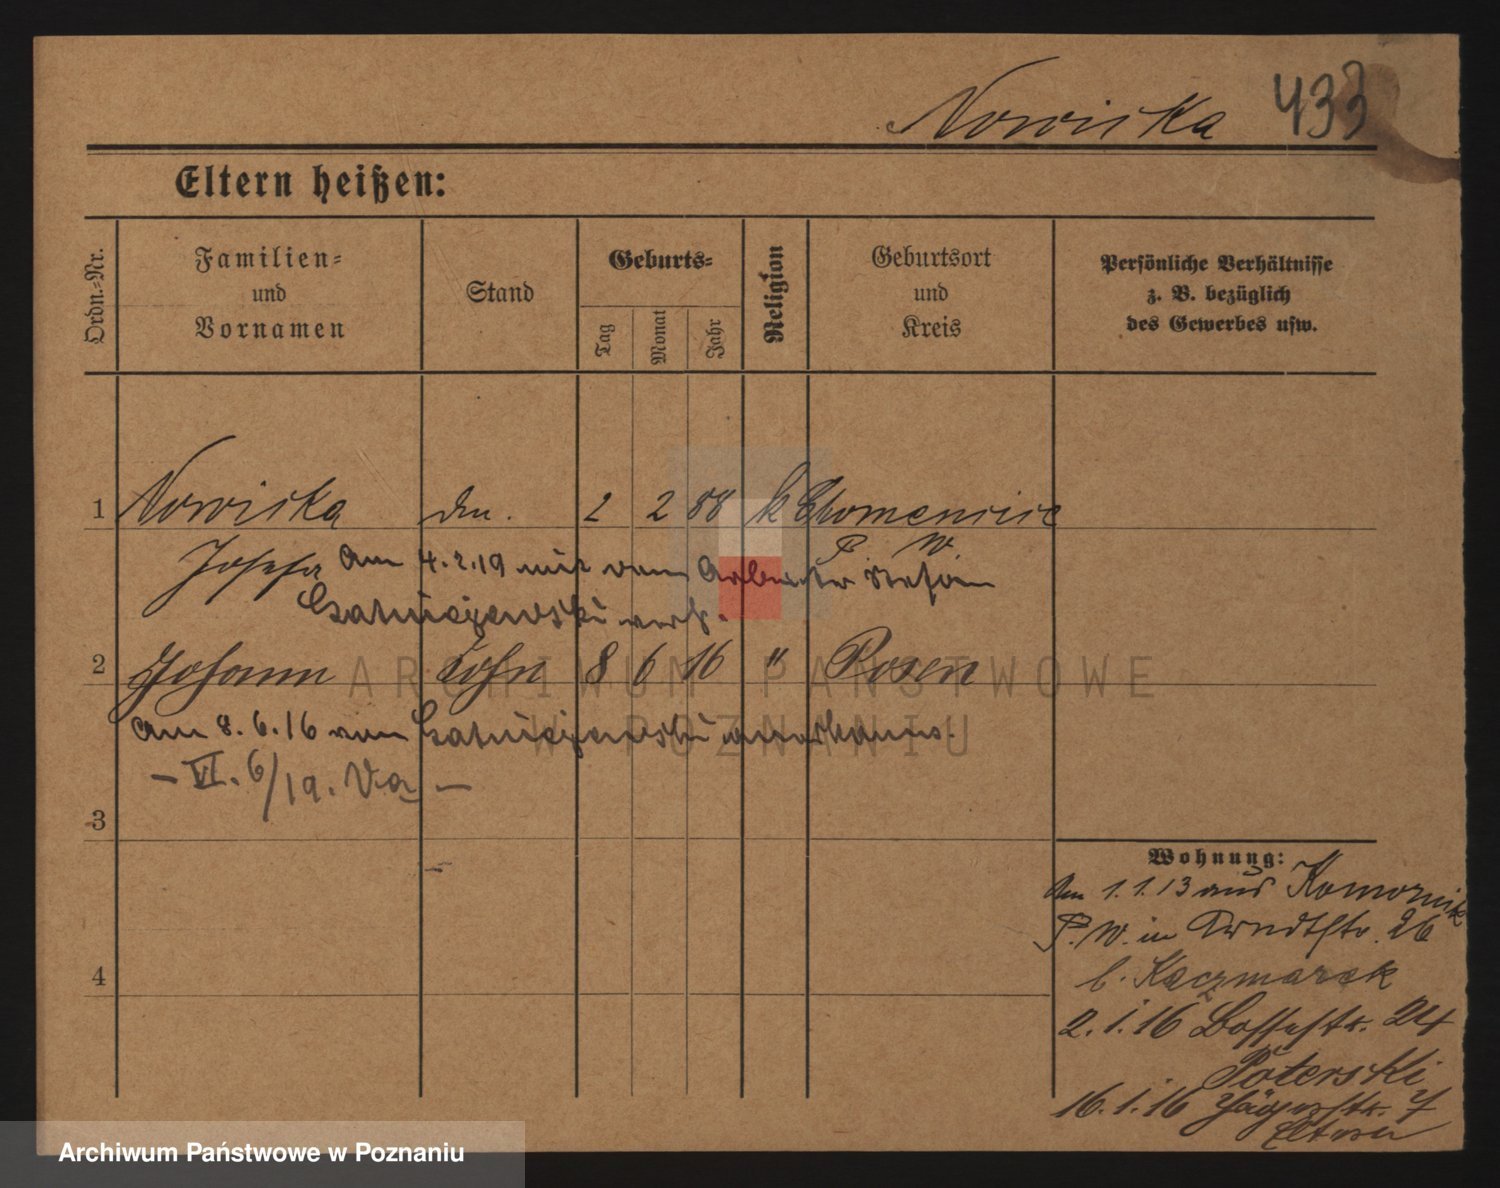 Nowiska 433
Eltern heißen:
Ordn.-Nr.
Familien-
und
Vornamen
Stand
Geburts-
Tag
Monat
Jahr
Religion
Geburtsort
und
Kreis
Persönliche Verhältnisse
z. B. bezüglich
des Gewerbes usw.
1 Nowiska 2 2 88 k
P. W.
Josefa am 4.2.19 mit dem Arbeiter Stefan
verh.
2 Johann Sohn 8 6 16 " Posen
am 8.6.16 vom anerkannt.
– VI. 6/19. –
3
Wohnung:
am 1.1.13 aus Komornik
P. W. in Arndtstr. 26
b. Kaczmarek
4
2.1.16 24
Poterski
16.1.16 Jägerstr. 7
Eltern
ARCHIWUM PAŃSTWOWE
W POZNANIU
Archiwum Państwowe w Poznaniu